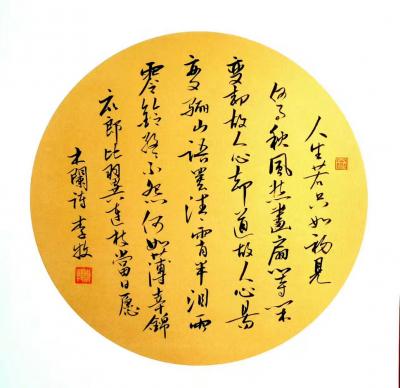 人生若只如初見
何事秋風悲畫扇等闲
變却故人心却道故人心易
變驪山語罷清霄半泪雨
零鈴終不怨何如薄幸錦
衣郎比翼連枝當日願
木蘭詩 李牧